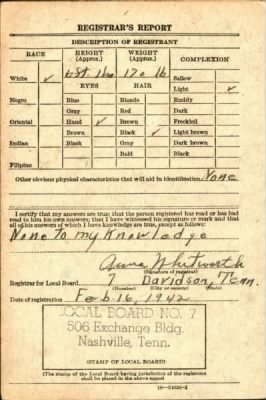 REGISTRAR'S REPORT
DESCRIPTION OF REGISTRANT
RACE HEIGHT (Approx.) WEIGHT (Approx.) COMPLEXION
White ✓ 170 lb Sallow
EYES HAIR Light ✓
Negro Blue Blonde Ruddy
Gray Red Dark
Oriental Hazel ✓ Brown Freckled
Brown Black ✓ Light brown
Indian Black Gray Dark brown
Bald Black
Filipino
Other obvious physical characteristics that will aid in identification None
I certify that my answers are true; that the person registered has read or has had
read to him his own answers; that I have witnessed his signature or mark and that
all of his answers of which I have knowledge are true, except as follows:
None to my Knowledge
Anna Whitworth
(Signature of registrar)
Registrar for Local Board 7 Davidson, Tenn.
(Number) (City or county) (State)
Date of registration Feb. 16, 1942
LOCAL BOARD NO. 7
506 Exchange Bldg.
Nashville, Tenn.
(STAMP OF LOCAL BOARD)
(The stamp of the Local Board having jurisdiction of the registrant
shall be placed in the above space)